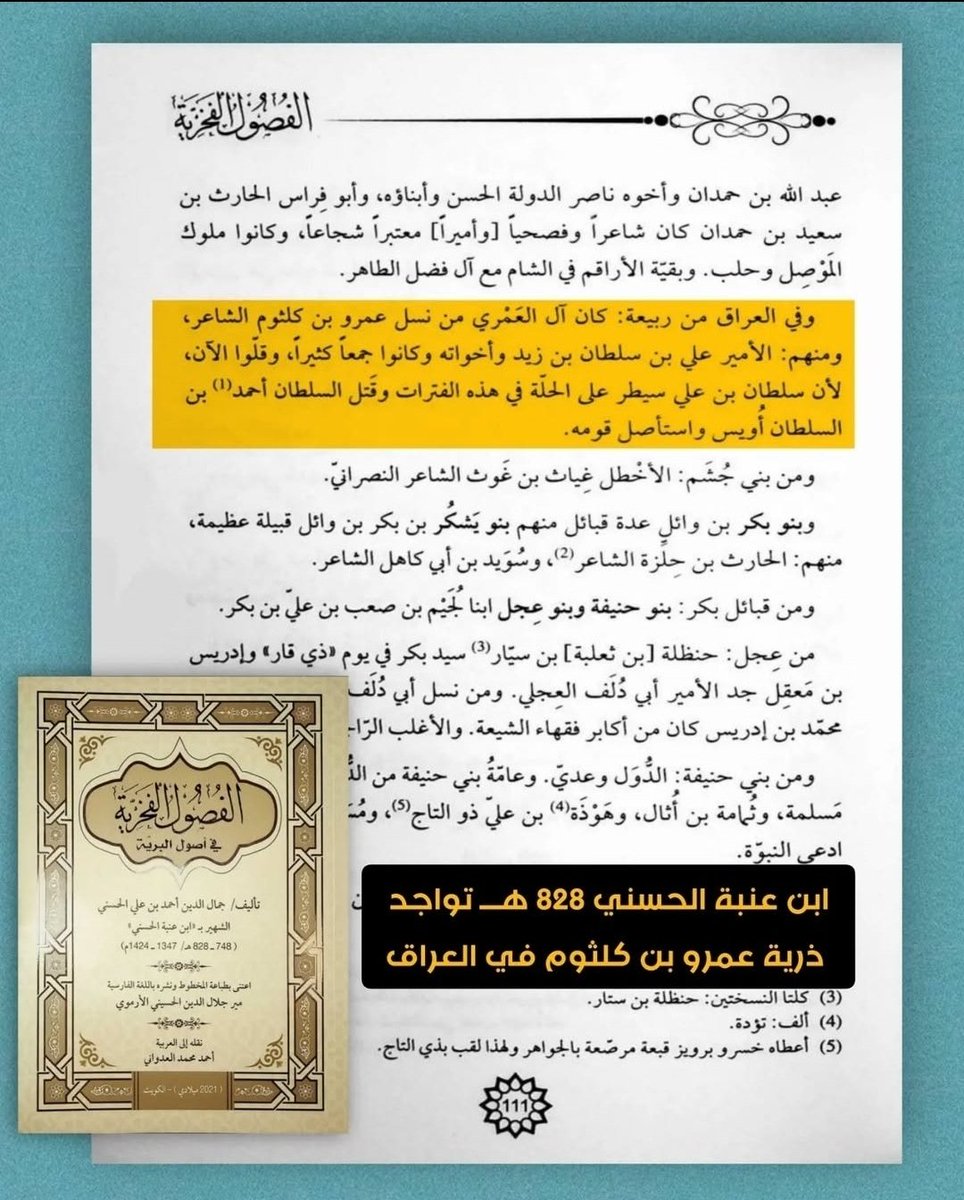 الفصول الفخرية
عبد الله بن حمدان وأخوه ناصر الدولة الحسن وأبناؤه، وأبو فِراس الحارث بن
سعيد بن حمدان كان شاعراً وفصحياً [وأميراً] معتبراً شجاعاً، وكانوا ملوك
المَوْصِل وحلب. وبقيّة الأراقم في الشام مع آل فضل الطاهر.
وفي العراق من ربيعة: كان آل العَمْري من نسل عمرو بن كلثوم الشاعر،
ومنهم: الأمير علي بن سلطان بن زيد وأخواته وكانوا جمعاً كثيراً، وقلّوا الآن،
لأن سلطان بن علي سيطر على الحلّة في هذه الفترات وقَتل السلطان أحمد(1) بن
السلطان أُويس واستأصل قومه.
ومن بني جُشَم: الأخْطل غِياث بن غَوث الشاعر النصرانيّ.
وبنو بكر بن وائلٍ عدة قبائل منهم بنو يَشكُر بن بكر بن وائل قبيلة عظيمة،
منهم: الحارث بن حِلزة الشاعر(2)، وسُوَيد بن أبي كاهل الشاعر.
ومن قبائل بكر: بنو حنيفة وبنو عِجل ابنا لُجَيْم بن صعب بن عليّ بن بكر.
من عِجل: حنظلة [بن ثعلبة] بن سيّار(3) سيد بكر في يوم «ذي قار» وإدريس
بن مَعقِل جد الأمير أبي دُلَف العِجلي. ومن نسل أبي دُلَف
محمّد بن إدريس كان من أكابر فقهاء الشيعة. والأغلب
ومن بني حنيفة: الدُّوَل وعديّ. وعامّةُ بني حنيفة من
مَسلمة، وثُمامة بن أُثال، وهَوْذَة(4) بن عليّ ذو التاج(5)،
ادعى النبوّة.
ابن عنبة الحسني 828 هـ تواجد
ذرية عمرو بن كلثوم في العراق
(3) كلتا النسختين: حنظلة بن ستار.
(4) ألف: تؤدة.
(5) أعطاه خسرو برويز قبعة مرصّعة بالجواهر ولهذا لقب بذي التاج.
111
الفصول الفخرية
في أصول البرية
تأليف/ جمال الدين أحمد بن علي الحسني
الشهير بـ «ابن عنبة الحسني»
(748 ـ 828 هـ/ 1347 ـ 1424م)
اعتنى بطباعة المخطوط ونشره باللغة الفارسية
مير جلال الدين الحسيني الأرموي
نقله إلى العربية
أحمد محمد العدواني
(2021 ميلادي) - الكويت